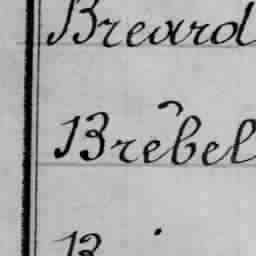 Breard
Brêbel